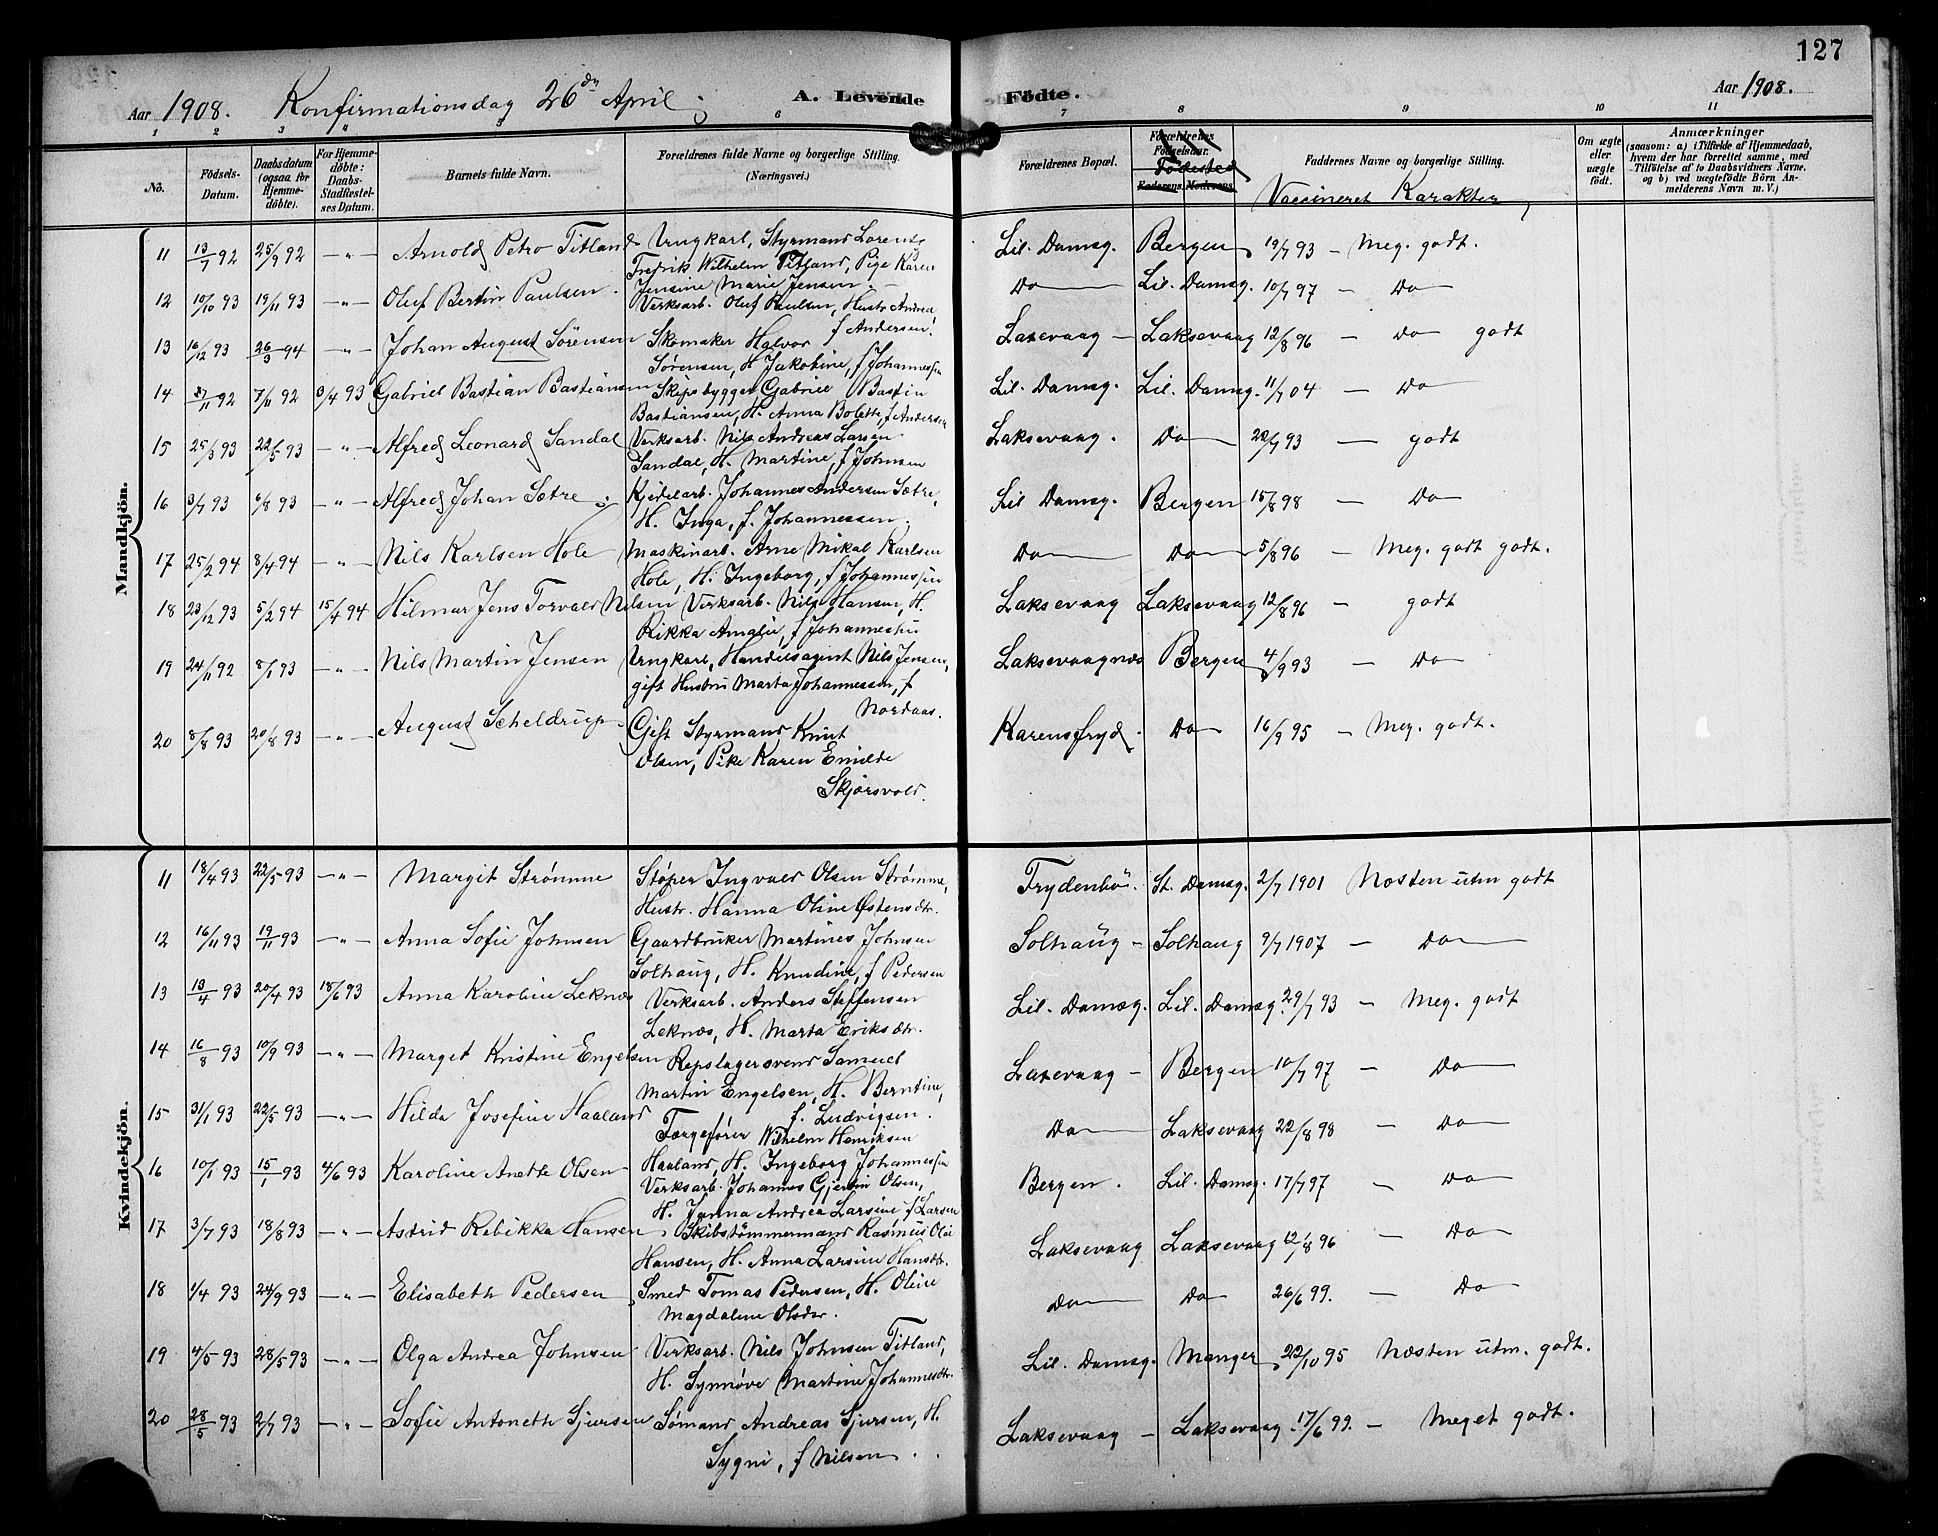 127
Aar 1908. Konfirmationsdag 26de April. A. Levende Födte. Aar 1908.
1 2 3 " 5 6 7 8 9 10 11
No. Födsels-Datum. Daabsdatum (ogsaa for Hjemmedöbte). For Hjemmedöbte: Daabs-Stadfestelses Datum. Barnets fulde Navn. Forældrenes fulde Navne og borgerlige Stilling. (Næringsvei.) Forældrenes Bopæl. Forældrenes Födselsaar. Faderens. Moderens. Fødested Faddernes Navne og borgerlige Stilling. Vaccineret Karakter Om ægte eller uægte födt. Anmærkninger (saasom: a) i Tilfælde af Hjemmedaab, hvem der har forrettet samme, med Tilföielse af to Daabsvidners Navne, og b) ved uægtefödte Börn Anmelderens Navn m. V.)
Mandkjön.
11 13/7 92 25/9 92 — " — Arnold Petro Titland Ungkarl, Styrmand Lorents Lil. Damsg. Bergen 19/7 93 — Meg. godt.
Fredrik Wilhelm Titland, Pige Karen
Jensine Marie Jensen.
12 10/10 93 19/11 93 — " — Oluf Bertin Paulsen. Verksarb. Oluf Paulsen, Hustr. Andrea, Do Lil. Damsg. 10/7 97 — Do
f Andersen.
13 16/12 93 26/3 94 — " — Johan August Sörensen Skomaker Halvor Laxevaag — Laksevaag 12/8 96 — Do godt
Sørensen, H. Jakobine, f Johannessen
14 27/11 92 7/11 92 3/4 93 Gabriel Bastian Bastiansen Skipsbygger Gabriel Bastin Lil. Damsg. Lil. Damsg. 11/7 04 — Do
Bastiansen, H. Anna Bolette, f Andersen
15 25/3 93 22/5 93 — " — Alfred Leonard Sandal Verksarb. Nils Andreas Larsen Laksevaag. Do 22/7 93 — godt
Sandal, H. Martine, f Johnsen
16 3/7 93 6/8 93 — " — Alfred Johan Sætre. Kjedelarb. Johannes Andersen Sætre, Lil Damsg. Bergen 15/8 98 — Do
H. Inga, f. Johannessen.
17 25/2 94 8/4 94 — " — Nils Karlsen Hole Maskinarb. Arne Mikal Karlsen Do Do 5/8 96 — Meg. godt godt.
Hole, H. Ingeborg, f Johannessen
18 23/12 93 5/2 94 15/4 94 Hilmar Jens Torvald Nilsen Verksarb. Nils Hansen, H. Laksevaag Laksevaag 12/8 96 — godt
Rikka Amalie, f Johannessen
19 24/11 92 8/1 93 — " — Nils Martin Jensen Ungkarl, Handelsagent Nils Jensen, Laksevaagnæs Bergen 4/9 93 — Do
gift Hustru Marta Johannessen, f
Nordaas.
20 8/8 93 20/8 93 — " — August Scheldrup Gift Styrmand Knut Karensfryd. Do 16/9 95 — Meg. godt.
Olsen, Pike Karen Emilde
Skjørsvold.
Kvindekjön.
11 18/4 93 22/5 93 — " — Margit Strømme Støper Ingvald Olsen Strømme, Frydenbö. St. Damsg. 2/7 1901 Næsten utm godt
Hustr. Hanna Oline Østensdtr.
12 16/11 93 19/11 93 — " — Anna Sofie Johnsen Gaardbruker Martines Johnsen Solhaug — Solhaug 9/7 1907 — Do
Solhaug, H. Knudine, f Pedersen
13 13/4 93 20/4 93 18/6 93 Anna Karoline Leknæs Verksarb. Anders Steffensen Lil. Damsg. Lil. Damsg. 29/7 93 — Meg. godt
Leknæs, H. Marta Eriksdtr.
14 16/8 93 10/9 93 — " — Marget Kristine Engelsen Repslagersvend Samuel Laxevaag — Bergen 10/7 97 — Do
Martin Engelsen, H. Berntine,
f. Ludvigsen.
15 31/1 93 22/5 93 — " — Hilda Josefine Haaland Færgefører Wilhelm Henriksen Do Laksevaag 22/8 98 — Do
Haaland, H. Ingeborg Johannessen
16 10/1 93 15/1 93 4/6 93 Karoline Anette Olsen Verksarb. Johannes Gjertin Olsen, Bergen. Lil. Damsg. 17/7 97 — Do
H. Janna Andrea Larsine f Larsen
17 3/7 93 18/8 93 — " — Astrid Rebikka Hansen Skibstömmermand Rasmus Olai Laksevaag Laksevaag 12/8 96 — Do
Hansen, H. Anna Larsine Hansdtr.
18 1/4 93 24/9 93 — " — Elisabeth Pedersen Smed Tomas Pedersen, H. Oline Do Do 26/6 99. — Do
Magdalene Olsdtr.
19 4/5 93 28/5 93 — " — Olga Andrea Johnsen Verksarb. Nils Johnsen Titland, Lil. Damsg. Manger 22/10 95 Næsten utm. godt.
H. Synnöve Martine Johannesdtr.
20 28/5 93 2/7 93 — " — Sofie Antoneth Sjursen Sømand Andreas Sjursen, H. Laksevaag — Laksevaag. 17/6 99. — Meget godt.
Sygni, f Nilsen.